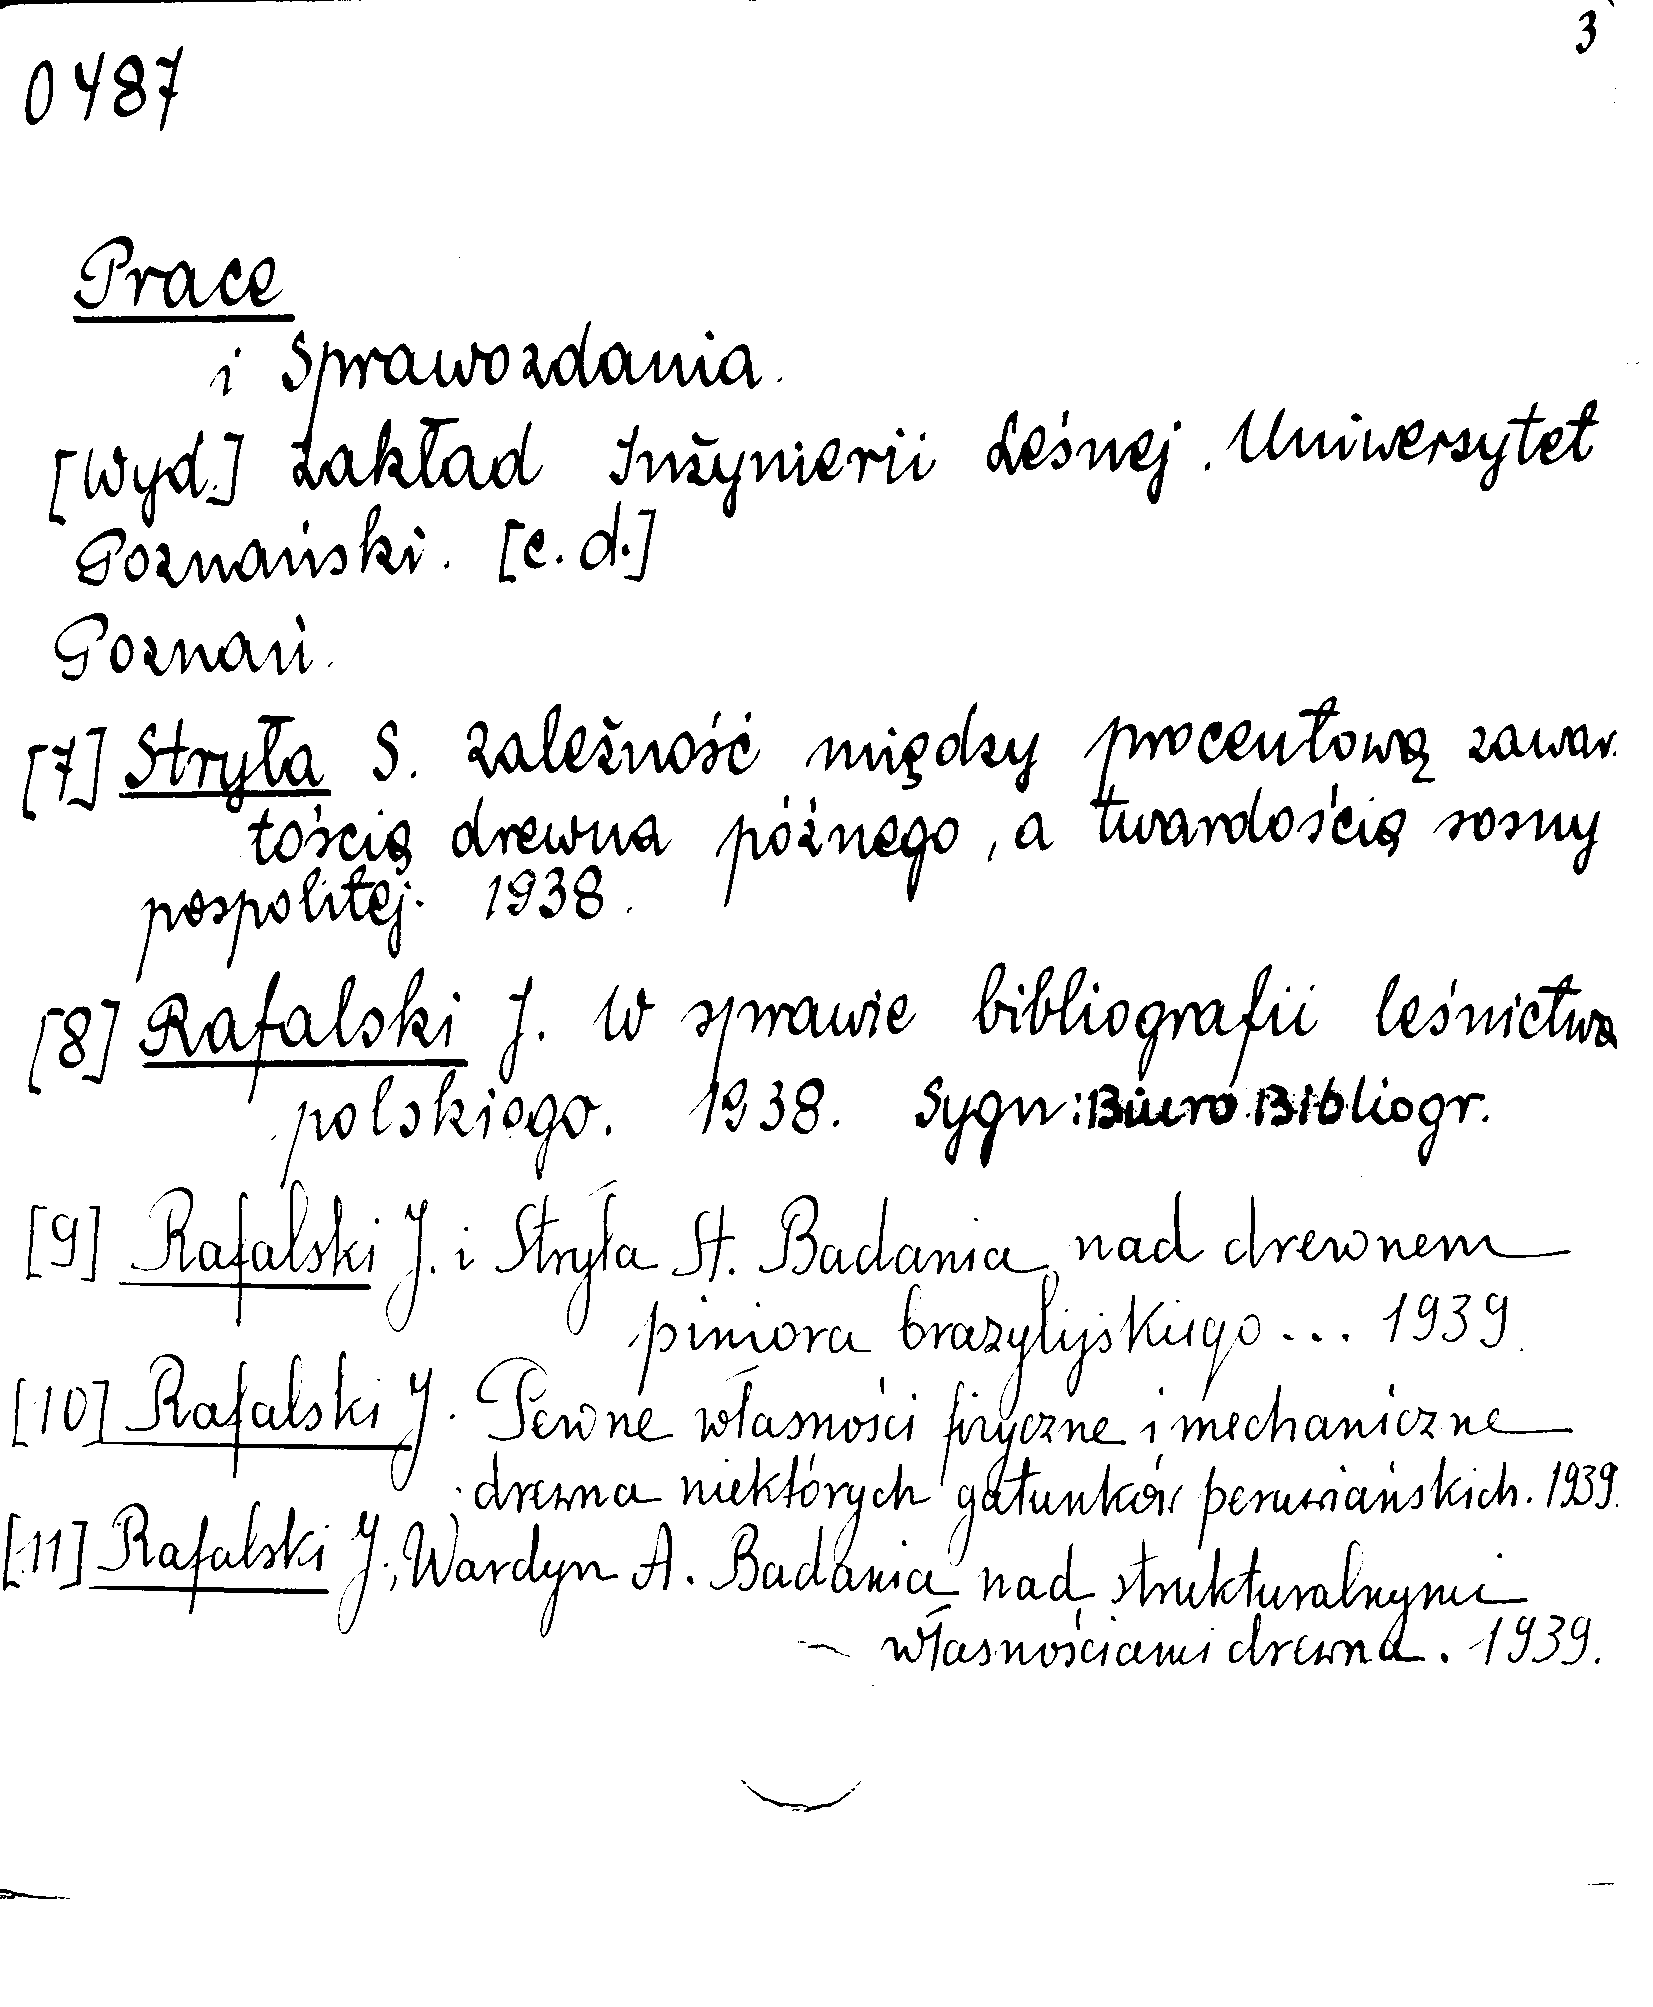 3
0487
Prace
i Sprawozdania.
[Wyd.] Zakład Inżynierii Leśnej. Uniwersytet
Poznański. [c.d.]
Poznań.
[7] Stryła S. Zależność między procentową zawar-
tością drewna późnego, a twardością sosny
pospolitej. 1938.
[8] Rafalski J. W sprawie bibliografii leśnictwa
polskiego. 1938. Sygn: Biuro Bibliogr.
[9] Rafalski J. i Stryła St. Badania nad drewnem
piniora brazylijskiego... 1939.
[10] Rafalski J. Pewne własności fizyczne i mechaniczne
drewna niektórych gatunków peruwiańskich. 1939.
[11] Rafalski J., Wardyn A. Badania nad strukturalnymi
własnościami drewna. 1939.